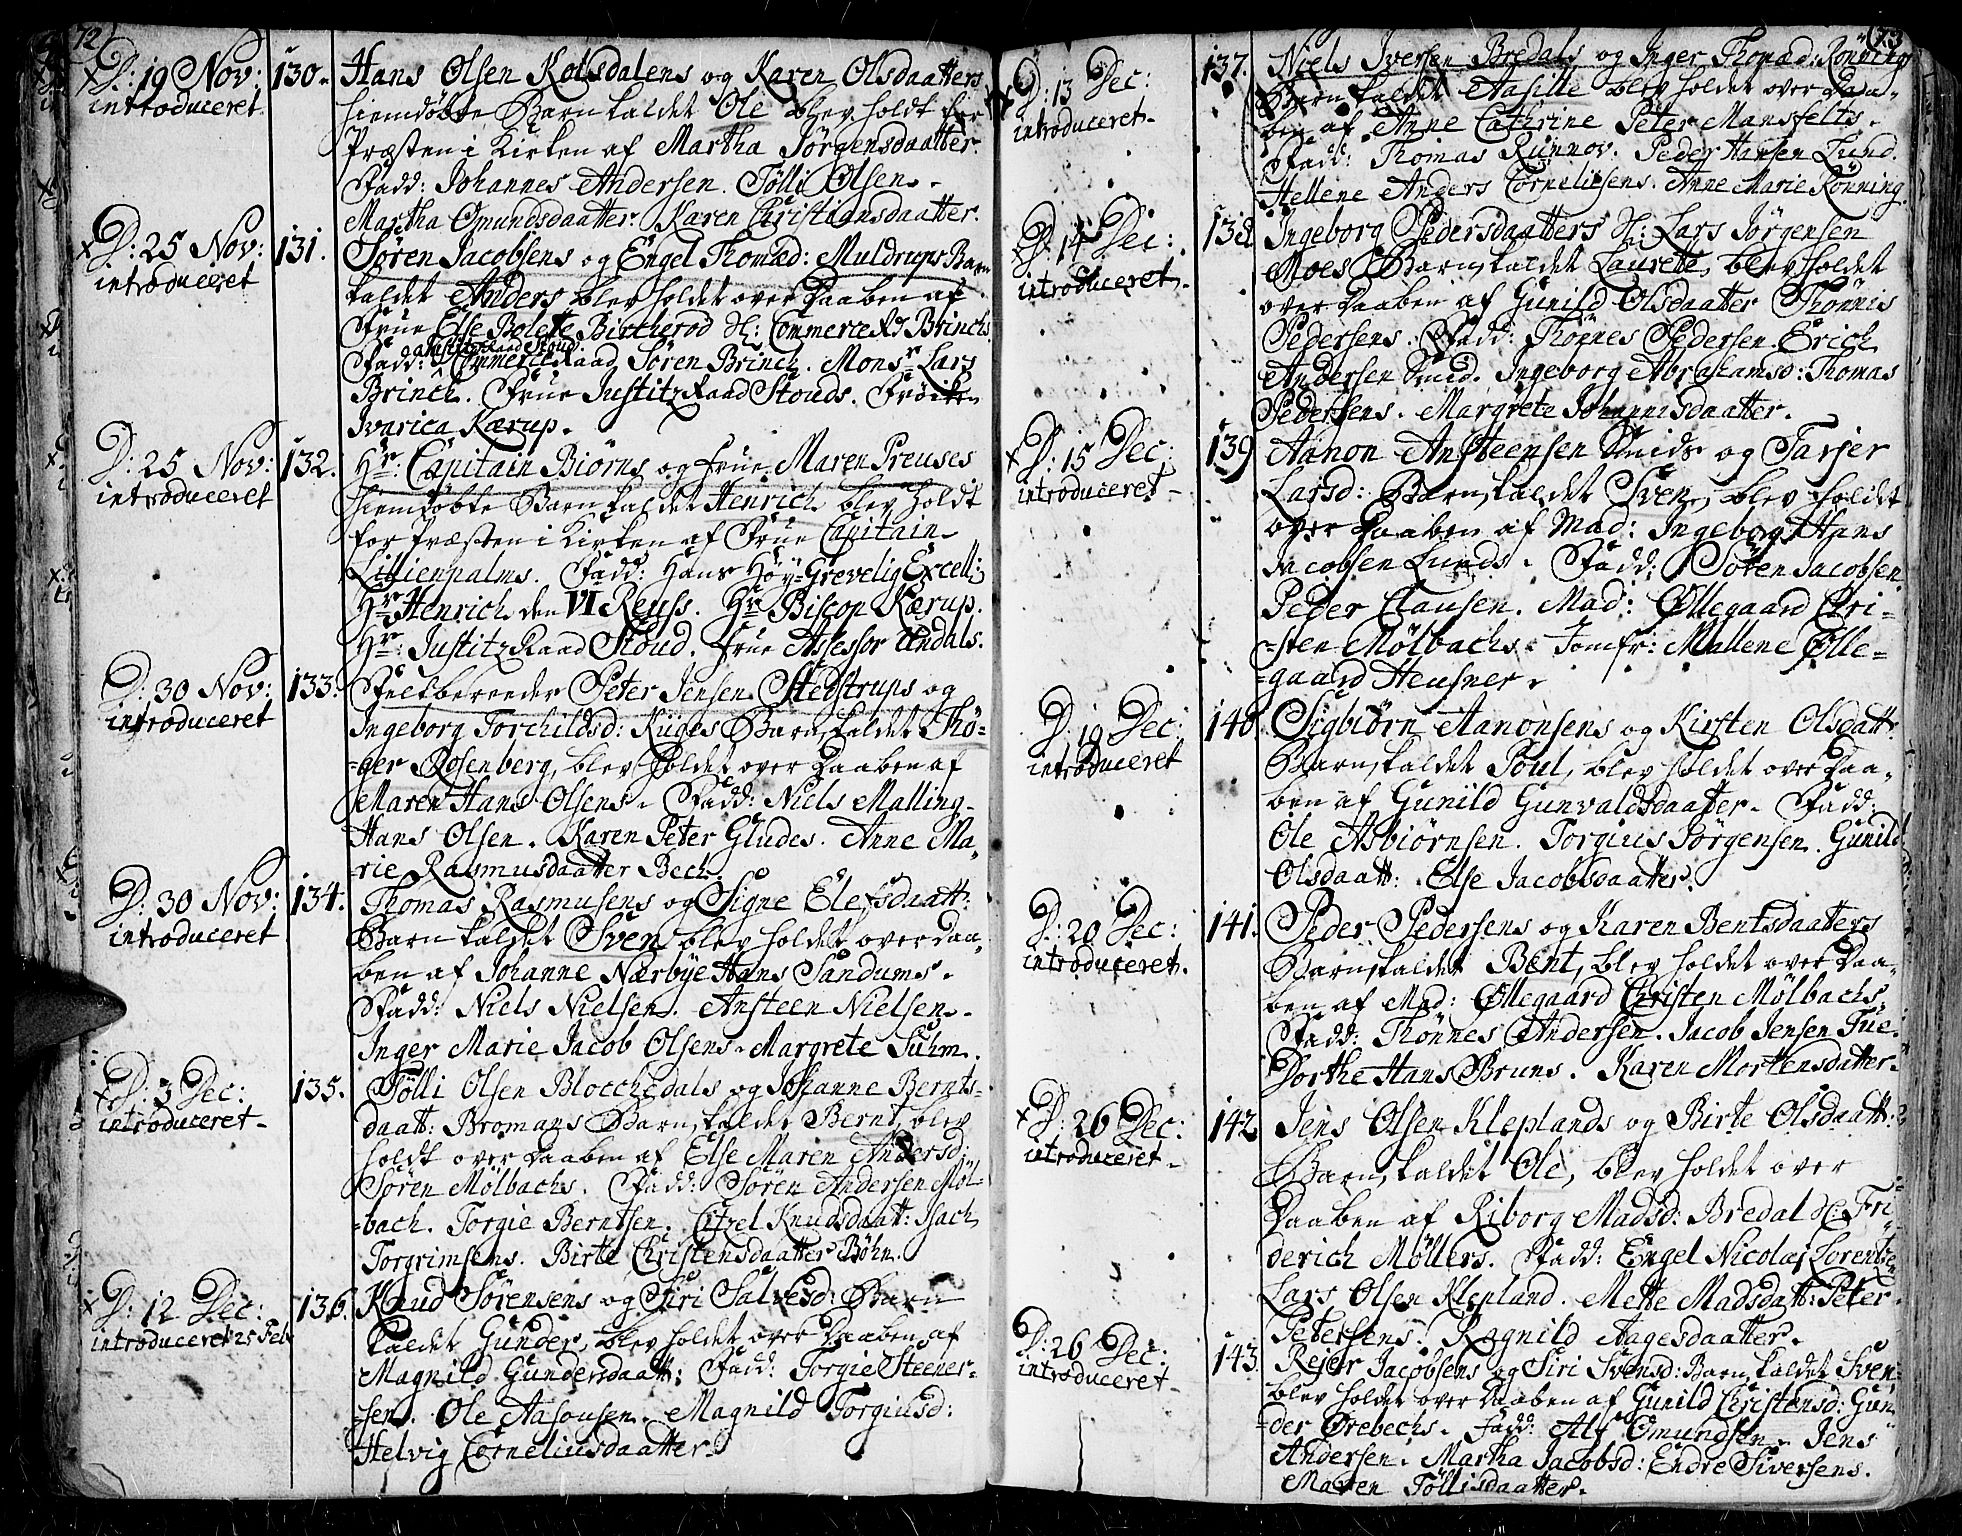 72
D: 19 Nov: 130. Hans Olsen Kolsdalens og Karen Olsdaatters
introduceret. hiemdöbte Barn kaldet Ole blev holdt for
Præsten i Kirken af Martha Jörgensdaatter.
Fadd: Johannes Andersen. Tölli Olsen.
Martha Omundsdaatter. Karen Christiansdaatter.
D: 25 Nov: 131. Sören Jacobsens og Engel Thomæd: Muldrups Barn
introduceret kaldet Anders, blev holdet over Daaben af
Frue Else Bolette Bircherod H: Commerce Rd Brinchs
Justitz Raad Stoud.
Fadd: Commerce Raad Sören Brinch. Monsr Lars
Brinch. Frue Justitz Raad Stouds. Fröiken
Ivarica Kærup.
D: 25 Nov: 132. Hr: Capitain Biörns og frue Maren Preuses
introduceret hiemdöbte Barn kaldet Henrich, blev holdt
for Præsten i Kirken af Frue Capitain
Lillienpalms. Fadd: Hans Höy-Grevelig Excell:
Hr Henrich den VI Reuss. Hr Biscop Kærup.
Hr: Justitz Raad Stoud. frue Assessor Undals.
D: 30 Nov: 133. Feltbereeder Peter Jensen Stedstrups og
introduceret Ingeborg Torchildsd: Kiiges Barn, kaldet Thö-
-ger Rosenberg, blev holdet over Daaben af
Maren Hans Olsens. Fadd: Niels Malling.
Hans Olsen. Karen Peter Gludes. Anne Ma-
-rie Rasmusdaatter Bech.
D: 30 Nov: 134. Thomas Rasmusens og Signe Elefsdaatt:
introduceret Barn kaldet Sven blev holdet over Daa-
ben af Johanne Nærbye Hans Sandums.
Fadd: Niels Nielsen. Ansteen Nielsen.
Inger Marie Jacob Olsens. Margrete Suhm.
D: 3 Dec: 135. Tölli Olsen Blocchedals og Johanne Bernts-
introduceret. daatt: Bromans Barn, kaldet Bernt, blev
holdt over Daaben af Else Maren Andersd:
Sören Mölbachs. Fadd: Sören Andersen Möl-
-bach. Torgie Berntsen. Citzel Knudsdaatt: Isach
Torgrimsens. Birte Christensdaatter Böhn.
D: 12 Dec: 136. Knud Sörensens og Siri Salvesd: Barn
introduceret 25 Feb kaldet Gunder, blev holdet over Daaben af
Magnild Gundersdaatt: Fadd: Torgie Steener-
-sen. Ole Aasousen. Magnild Torgiusd:
Helvig Corneliusdaatter.
73
D: 13 Dec: 137. Niels Iversen Bredals og Inger Thomæd. Rönning
introduceret. Barn kaldet Aasille blev holdet over Daa-
ben af Anne Cathrine Peter Mansfelts.
Fadd: Thomas Runnov. Peder Hansen Lund.
Hellene Anders Corneliisens. Anne Marie Rönning.
D: 14 Dec: 138. Ingeborg Pedersdaatters H: Lars Jörgensen
introduceret. Moes Barn, kaldet Laurete, blev holdet
over Daaben af Gunild Olsdaatter Thönnis
Pedersens. Fadd: Thönnes Pedersen. Erich
Andersen Smid. Ingeborg Abrahamsd: Thomas
Pedersens. Margrete Johannisdaatter.
D: 15 Dec: 139 Aanon Ansteensen Smids og Tarjer
introduceret. Larsd: Barn, kaldet Sven, blev holdet
over Daaben af Mad: Ingeborg Hans
Jacobsen Lunds. Fadd: Sören Jacobsen
Peder Clausen. Mad: Øllegaard Chri-
-sten Mölbachs. Jomfr: Mallene Ølle-
-gaard Heusner.
D: 19 Dec: 140 Sigbiörn Aanonsens og Kirsten Olsdatt:
introduceret Barn, kaldet Poul, blev holdet over Daa-
ben af Gunild Gunvaldsdaatter. Fadd:
Ole Asbiörnsen. Torgius Jörgensen. Gunild
Olsdaatt: Else Jacobsdaatter.
D: 20 Dec: 141. Peder Pedersens og Karen Bentsdaatters
introduceret. Barn, kaldet Bent, blev holdet over Daa-
ben af Mad: Øllegaard Christen Mölbachs.
Fadd: Thönnes Andersen. Jacob Jensen Tue.
Dorthe Hans Bruns. Karen Mortensdatter.
D: 26 Dec: 142 Jens Olsen Kleplands og Birte Olsdaatt:
introduceret. Barn, kaldet Ole, blev holdet over
Daaben af Riborg Madsd: Bredal H: Fri-
derich Möllers. Fadd: Engel Nicolai Lorentzen
Lars Olsen Klepland. Mette Madsdatt: Peter
Petersens. Ragnild Aagesdaatter.
D: 26 Dec: 143. Rejer Jacobsens og Siri Svensd: Barn kaldet Sven
introduceret. blev holdet over Daaben af Gunild Christensd: Gun-
-der Ørebechs. Fadd: Alf Omundsen. Jens
Andersen. Martha Jacobsd: Endre Siversens.
Maren Töllisdaatter.